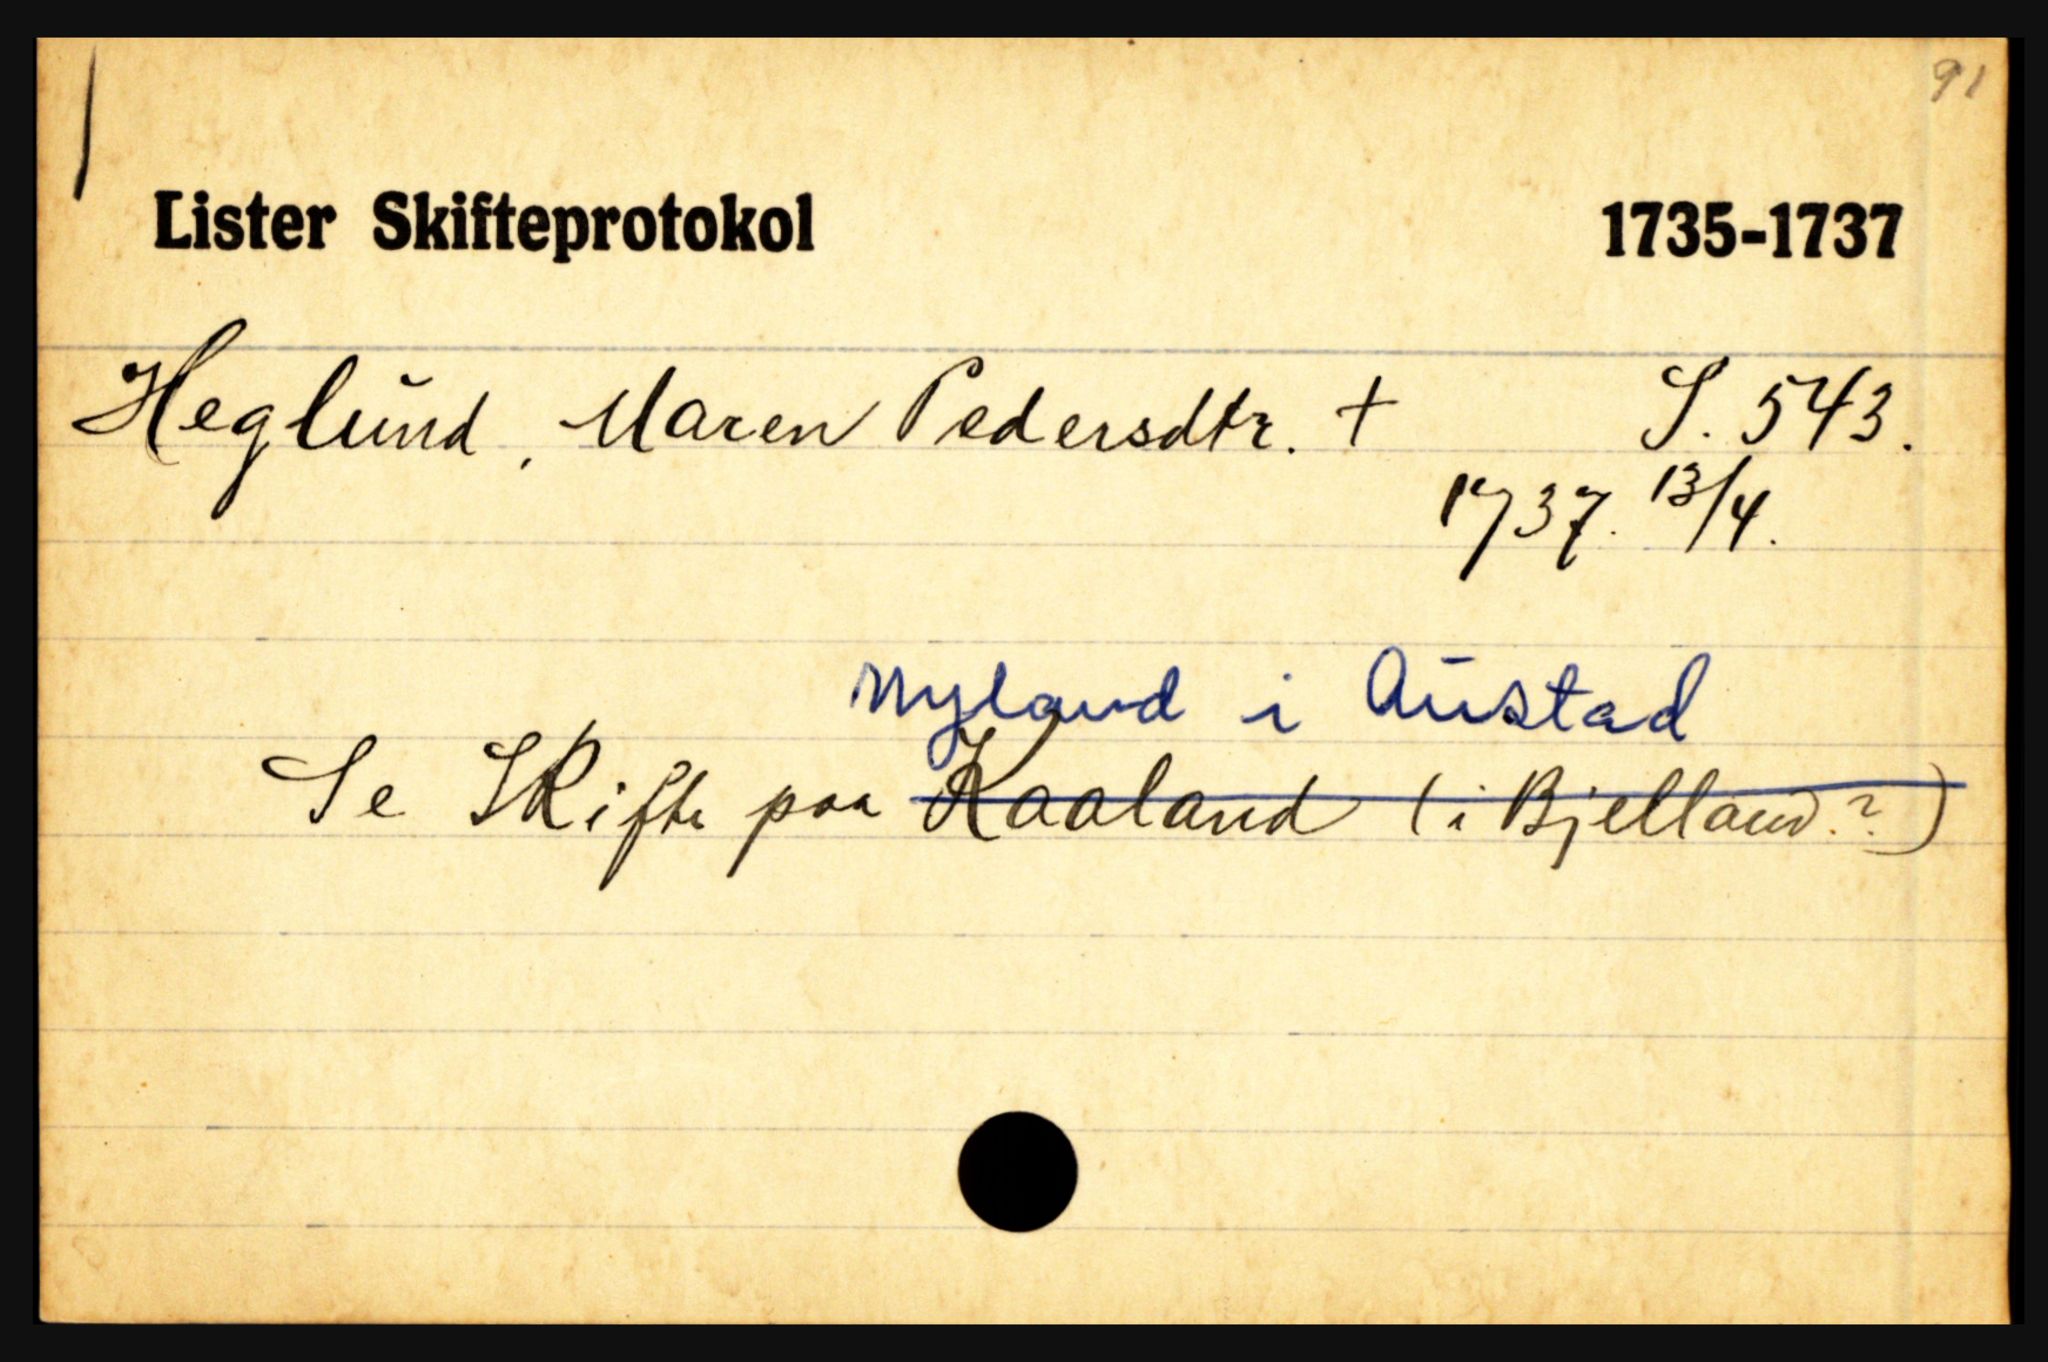 91
Lister Skifteprotokol 1735-1737
Heglund, Maren Pedersdtr. + S. 543.
1737. 13/4.
Nyland i Austad
Se Skifte paa Kaaland (i Bjelland.?)